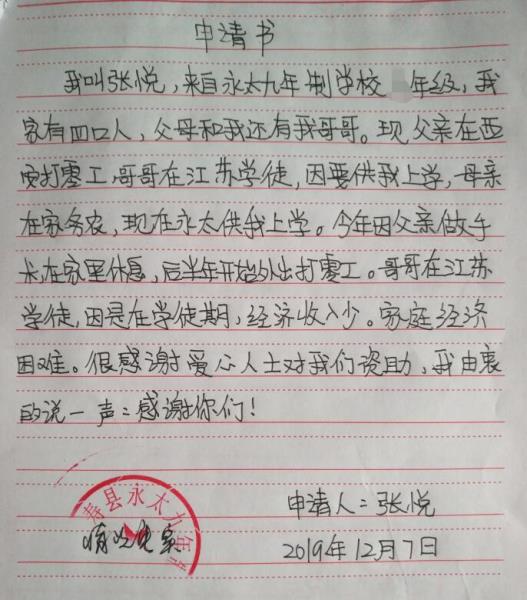 申请书
我叫张悦，来自永太九年制学校 年级，我
家有四口人，父母和我还有我哥哥。现父亲在西
安打零工，哥哥在江苏学徒，因要供我上学，母亲
在家务农，现在永太供我上学。今年因父亲做手
术，在家里休息，后半年开始外出打零工。哥哥在江苏
学徒，因是在学徒期，经济收入少。家庭经济
困难。很感谢爱心人士对我们资助，我由衷
的说一声：感谢你们！
寿县永太九年
情况属实
申请人：张悦
2019年12月7日